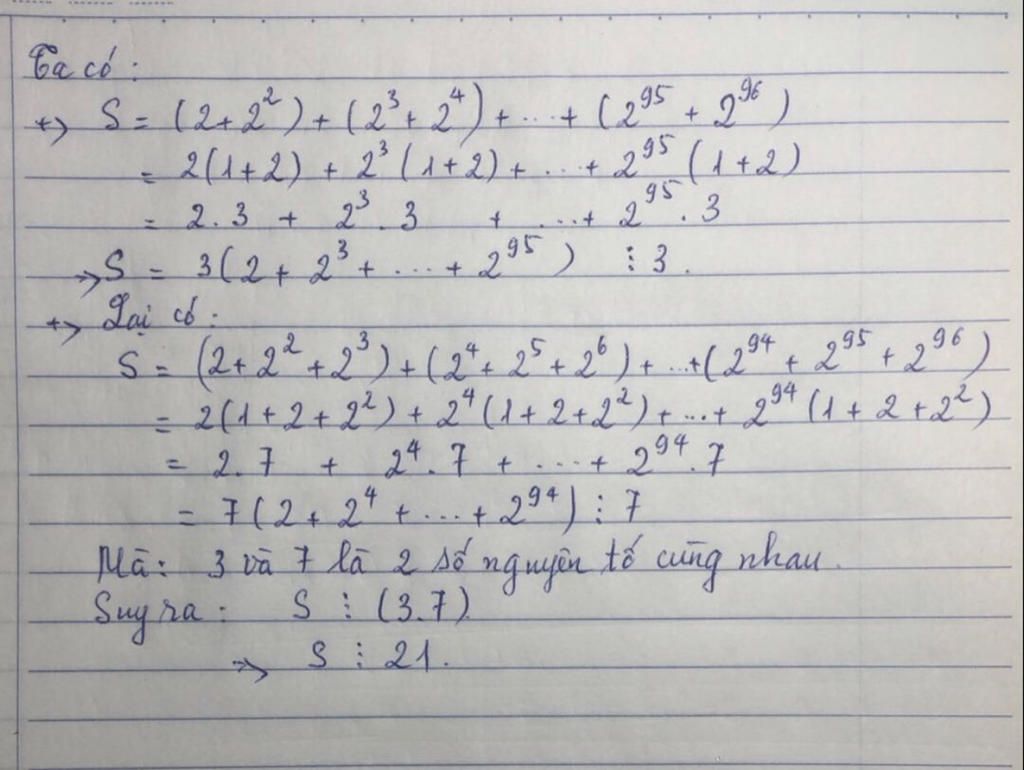 Ta có :
+> S = (2+2²) + (2³+2⁴) + ... + (2⁹⁵ + 2⁹⁶)
= 2(1+2) + 2³(1+2) + ... + 2⁹⁵(1+2)
= 2.3 + 2³.3 + ... + 2⁹⁵.3
=> S = 3(2 + 2³ + ... + 2⁹⁵) ⋮ 3.
+> Lại có :
S = (2+2²+2³) + (2⁴+2⁵+2⁶) + ...+(2⁹⁴ + 2⁹⁵ + 2⁹⁶)
= 2(1+2+2²) + 2⁴(1+2+2²) + ... + 2⁹⁴(1+2+2²)
= 2.7 + 2⁴.7 + ... + 2⁹⁴.7
= 7(2+2⁴ + ... + 2⁹⁴) ⋮ 7
Mà : 3 và 7 là 2 số nguyên tố cùng nhau.
Suy ra : S ⋮ (3.7)
=> S ⋮ 21.